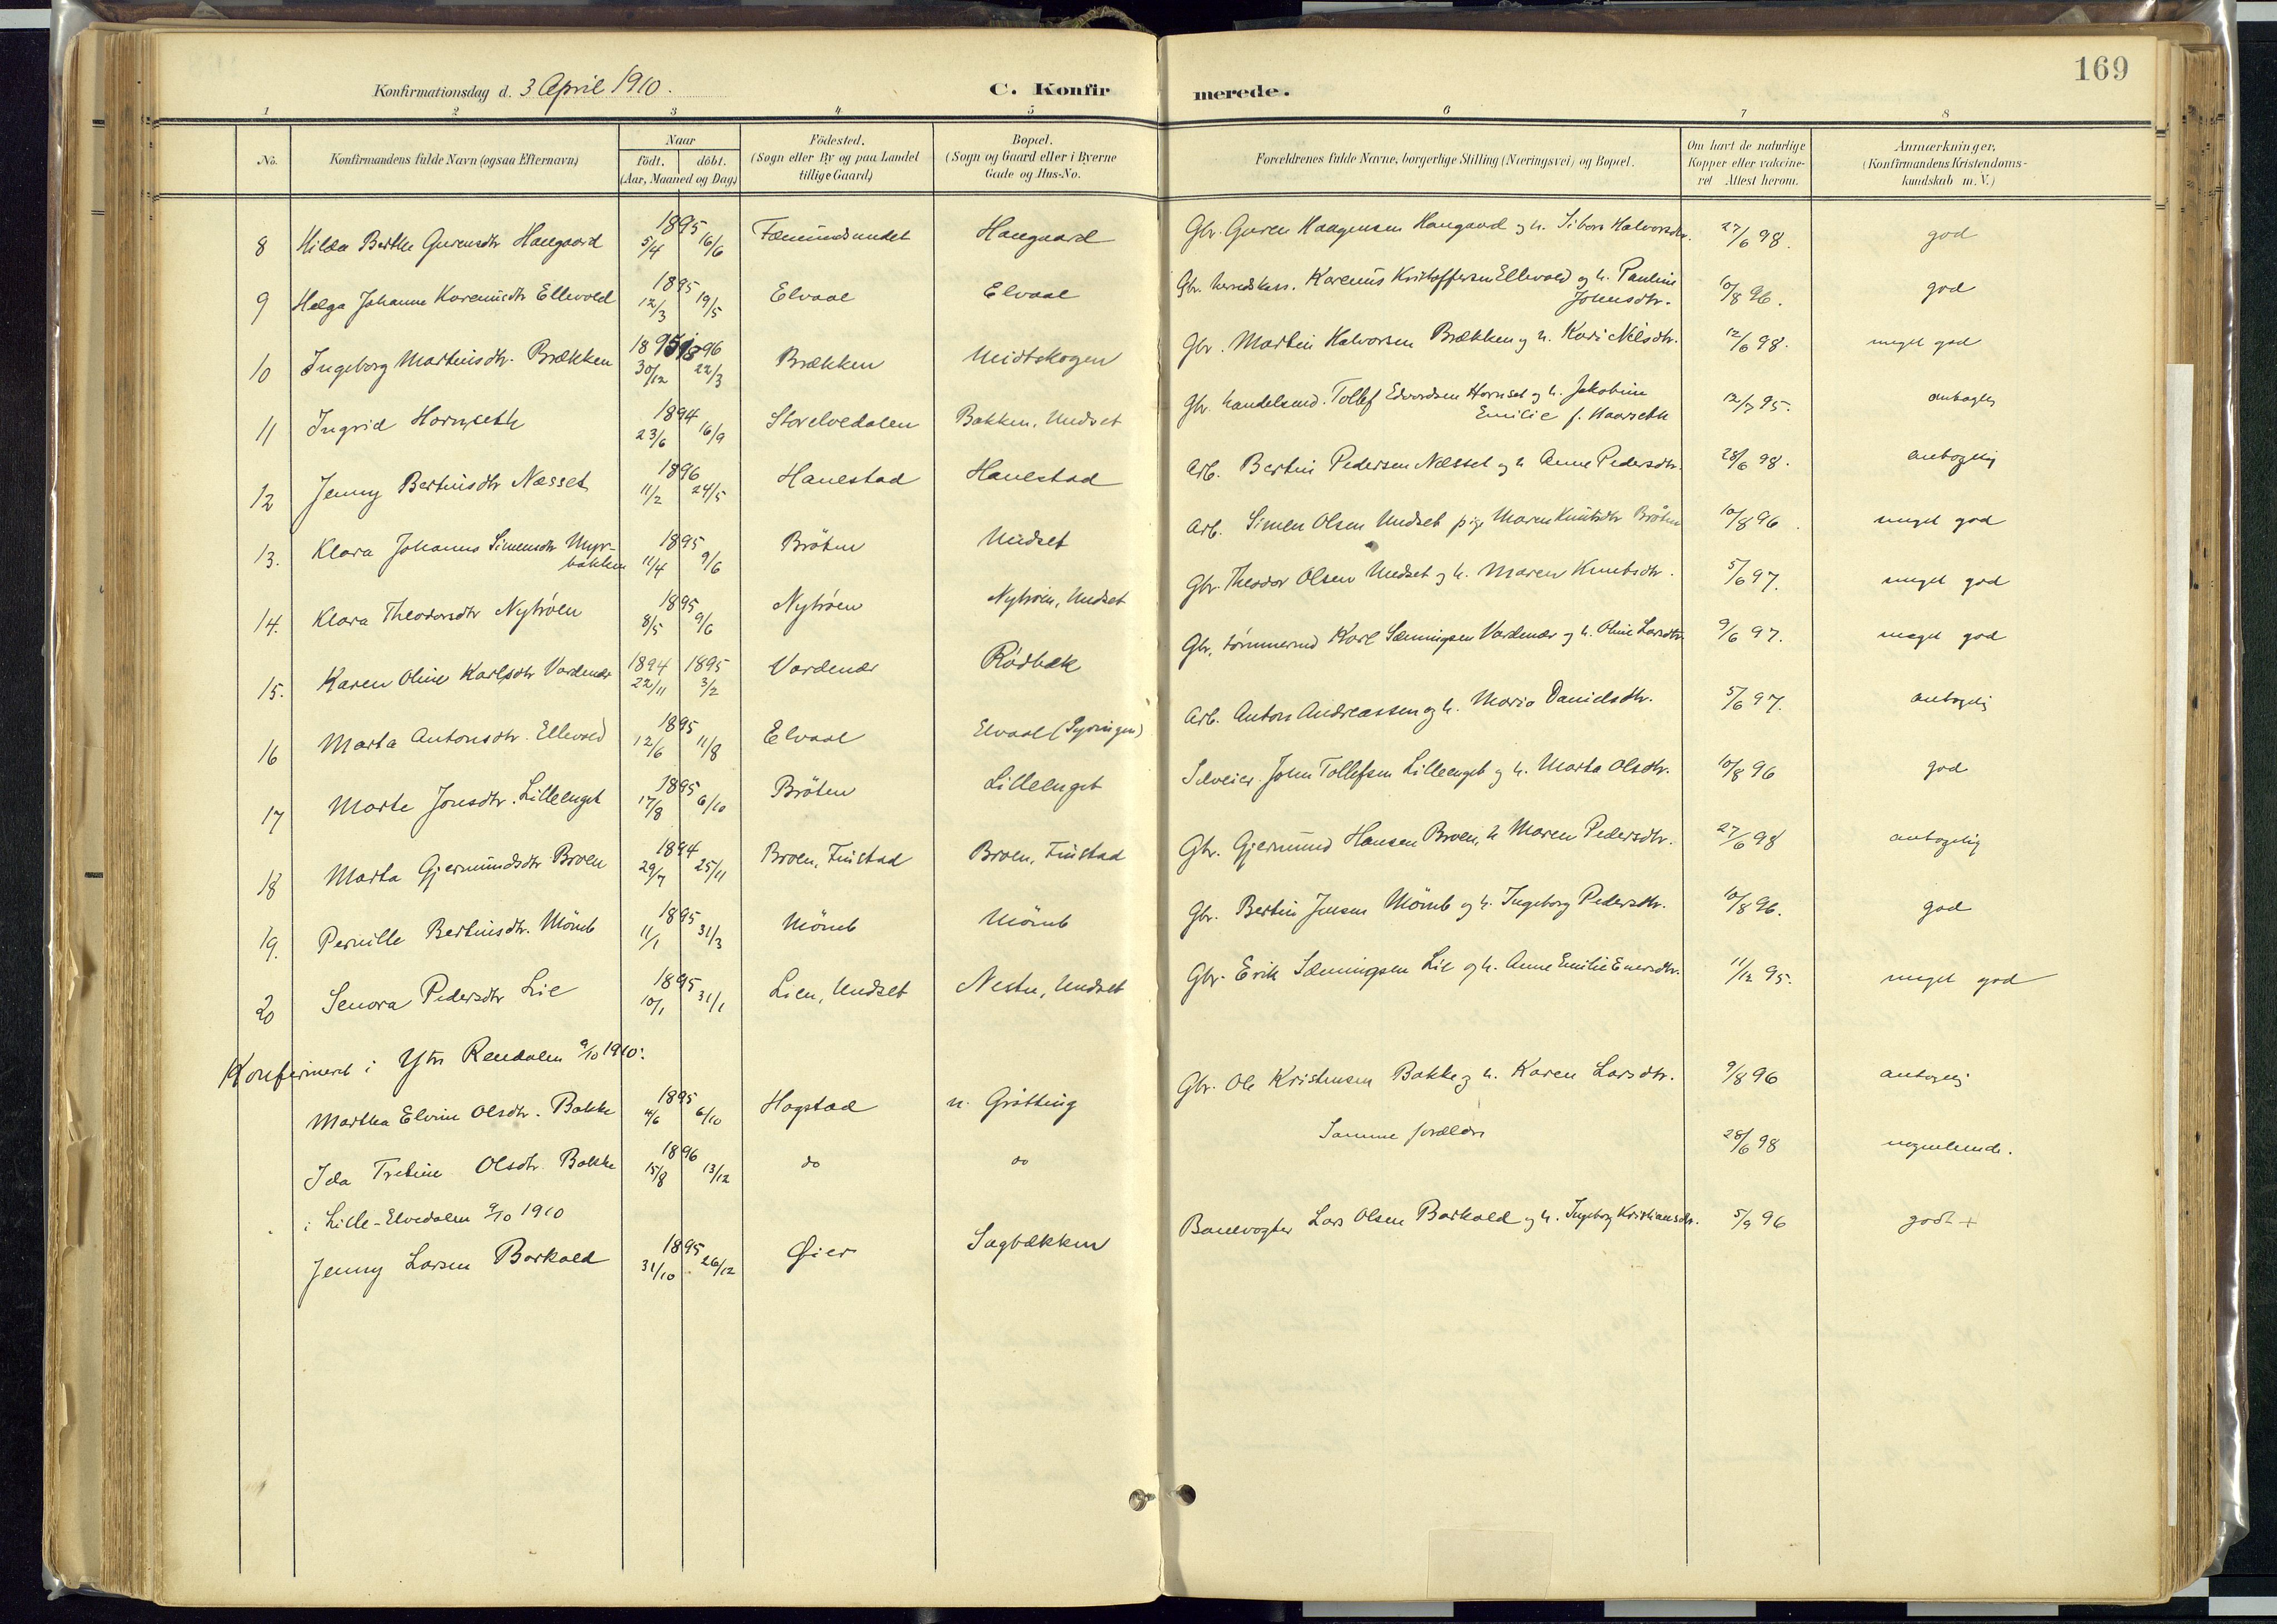 169
Konfirmationsdag d. 3 April 1910.
C. Konfirmerede.
1 2 3 4 5 6 7 8
No.
Konfirmandens fulde Navn (ogsaa Efternavn)
Naar
födt. döbt.
(Aar, Maaned og Dag)
Födested.
(Sogn eller By og paa Landet
tillige Gaard)
Bopæl.
(Sogn og Gaard eller i Byerne
Gade og Hus-No.
Forældrenes fulde Navne, borgerlige Stilling (Næringsvei) og Bopæl.
Om havt de naturlige
Kopper eller vakcine-
ret Attest herom.
Anmærkninger,
(Konfirmandens Kristendoms-
kundskab m. V.)
8 Hilda Berthe Gurensdtr Haugaard 1895 5/4 16/6 Fæmundsundet Haugaard Gbr. Guren Haagensen Haugaard og h. Halvorsdtr. 27/6 98. god
9 Helga Johanne Kareniusdtr Ellevold 1895 12/3 19/5 Elvaal Elvaal Gbr. Karenius Kristoffersen Ellevold og h. Pauline
Johnsdtr. 10/8 96. god
10 Ingeborg Martinsdtr. Brækken 1895 1896 30/12 22/3 Brækken Midtskogen Gbr. Martin Halvorsen Brækken og h. Kari Nilsdtr. 12/6 98. meget god
11 Ingrid Hornseth 1894 23/6 16/9 Storelvedalen Bakken, Undset Gbr. handelsmd. Tollef Edvardsen Hornset og h. Jakobine
Emilie f. Haarseth 12/7 95. antagelig
12 Jenny Bertinsdtr Næsset 1896 11/2 24/5 Hanestad Hanestad Arb. Bertin Pedersen Næsset og h Anne Pedersdtr. 28/6 98. antagelig
13. Klara Johanna Simensdtr Myr-
bakken 1895 11/4 9/6 Bröten Undset Arb. Simen Olsen Undset pige Maren Knutsdtr Bröten 10/8 96. meget god
14. Klara Theodorsdtr Nytröen 1895 8/5 9/6 Nytröen Nytröen, Undset Gbr. Theodor Olsen Undset og h. Maren Knutsdtr. 5/6 97. meget god
15. Karen Oline Karlsdtr Vardenær 1894 1895 22/11 3/2 Vardenær Rödbæk Gbr. tömmermd Karl Sæmingsen Vardenær og h. Oline Larsdtr. 9/6 97. meget god
16 Marta Antonsdtr. Ellevold 1895 12/6 11/8 Elvaal Elvaal Arb. Anton Andreassen og h. Maria Danielsdtr. 5/6 97. antagelig
17 Marte Jonsdtr. Lillelenget 1895 17/8 6/10 Bröten Lillelenget Selveier John Tollefsen Lilleenget og h. Marta Olsdtr. 10/8 96 god
18 Marta Gjermundsdtr Broen 1894 29/7 25/11 Broen, Finstad Broen, Finstad Gbr. Gjermund Hansen Broen, h Maren Pedersdtr. 27/6 98 antagelig
19. Pernille Bertinsdtr. Mömb 1895 11/1 31/3 Mömb Mömb Gbr. Bertin Jensen Mömb og h. Ingeborg Pedersdtr. 10/8 96. god
20 Senora Pedersdtr Lie 1895 10/1 31/1 Lien, Undset Nestu, Undset Gbr. Erik Sæmingsen Lie og h. Anne Emilie Enersdtr. 11/12 95. meget god
Konfirmert i Ytre Rendalen 9/10 1910:
Martha Elvine Olsdtr. Bakke 1895 4/6 6/10 Hagstad n. Gröttting Gbr. Ole Kristensen Bakke og h. Karen Larsdtr. 9/8 96 antagelig
Ida Trebine Olsdtr. Bakke 1896 15/8 13/12 do do Samme forældre 28/6 98
i Lille-Elvedalen 9/10 1910
Jenny Larsen Barkald 1895 31/10 26/12 Øier Sagbækken Banevogter Lars Olsen Barkald og h. Ingeborg Kristiansdtr. 5/9 96 godt +